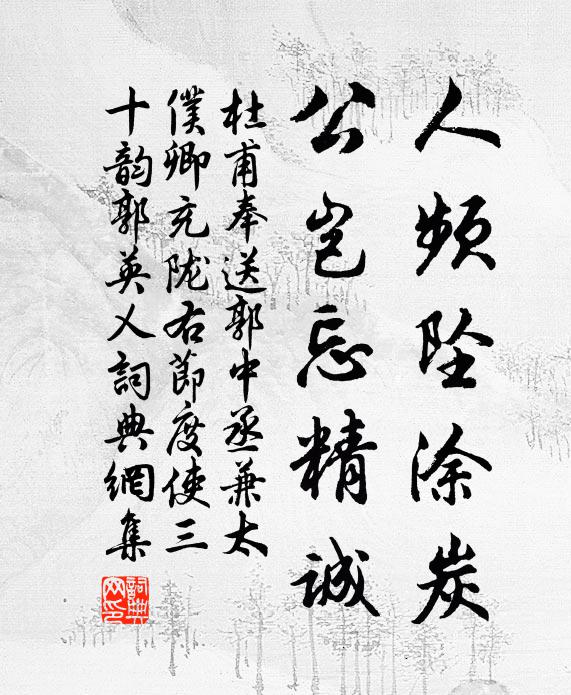 人频坠涂炭
公岂忘精诚
杜甫奉送郭中丞兼太
僕卿充陇右節度使三
十韵郭英乂詞典網集
詞典网印